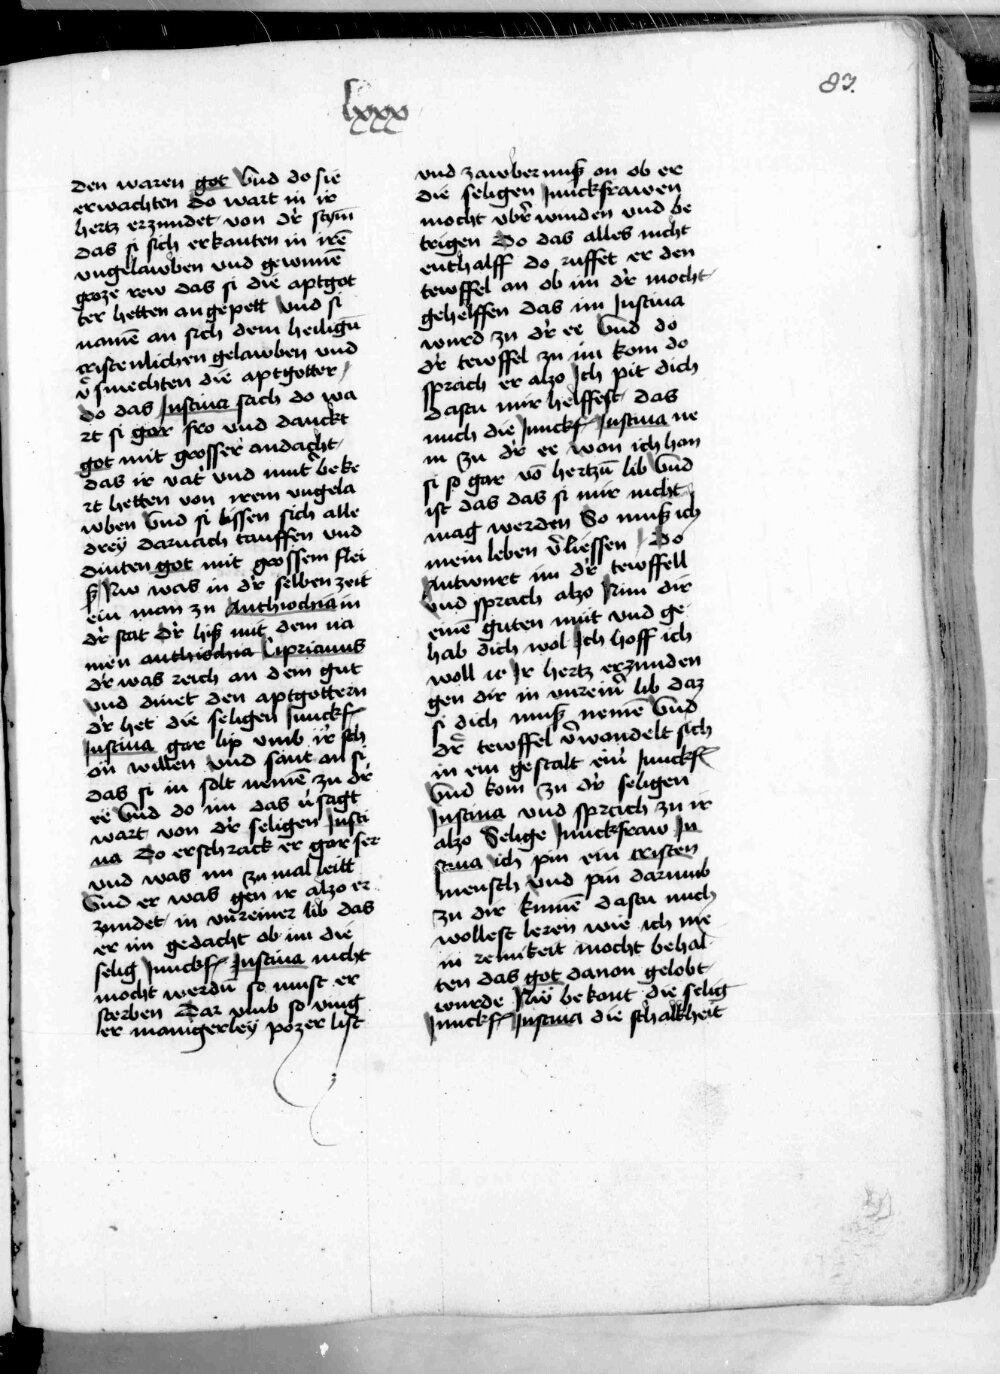 83.
lxxx
den waren got Vnd do sie
erwachten do wart in ir
hertz erzundet von dˀ stym
das si sich erkanten in irē
vngelawben vnd gewunnē
groze rew das si die aptgot
ter hetten an gepett Vnd si
namē an sich dem heiligū
cristenlichen gelawben vnd
vˀsmechten die aptgotter /
do das Justina sach do wa
rt si gar fro vnd danckt
got mit grosser andacht
das ir vatˀ vnd mutˀ beke
rt hetten von irem vngela
wben Vnd si lissen sich alle
drey darnach tauffen vnd
dinten got mit grossem flei
ß Nw was in dˀ selben zeit
ein man zu Anthiochia in
dˀ stat dˀ hiß mit dem na
men anthiochia Ciprianus
dˀ was reich an dem gut
vnd dinet den aptgottern
dˀ het die seligen Junckf
Justina gar lip vmb ir sch
on willen vnd sant an si
das si in solt nemē zu dˀ
ee Vnd do im das vˀsagt
wart von dˀ seligen Justi
na Do erschrack er gar ser
vnd was im zu mal leitt
Vnd er was gen ir alzo er
zundet in vnreiner lib das
er im gedacht ob im die
selig Junckf Justina nicht
mocht werdū so must er
sterben Dar vmb so ving
er manigerley pozer list
vnd zawbernuß on ob er
die seligen Junckfrawen
mocht vbˀwinden vnd be
trigen Do das alles nicht
enthalff do ruffet er den
tewffel an ob im dˀ mocht
gehelffen das im Justina
wurd zu dˀ ee Vnd do
dˀ tewffel zu im kom do
sprach er alzo Ich pit dich
dastu mir helffest das
mich die Junckf Justina ne
m zu dˀ ee wan ich han
si so gar vō hertzū lib Vnd
ist das das si mir nicht
mag werden So muß ich
mein leben vˀliessen / Do
Antwurt im dˀ tewffell
vnd sprach alzo Nim dir
einē guten mut vnd ge
hab dich wol Ich hoff ich
woll ir Ir hertz erzunden
gen dir in vnreinˀ lib daz
si dich muß nemē Vnd
dˀ tewffel vˀwandelt sich
in ein gestalt einˀ Junckf
Vnd kom zu dˀ seligen
Justina vnd sprach zu ir
alzo Selige Junckfraw Ju
stina ich pin ein cristen
mensch vnd pin darumb
zu dir kumē dastu mich
wollest leren wie ich me
in reinikeit mocht behal
ten das got dauon gelobt
wurde Nw bekant die selig
Junckf Justina die schalkheit